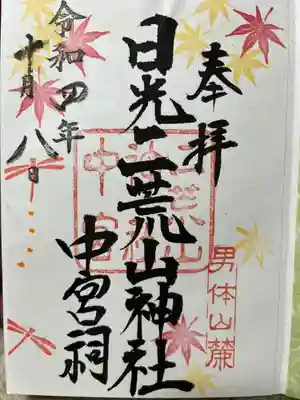 奉拝
日光二荒山神社
中宮祠
男体山麓
令和四年
十月八日